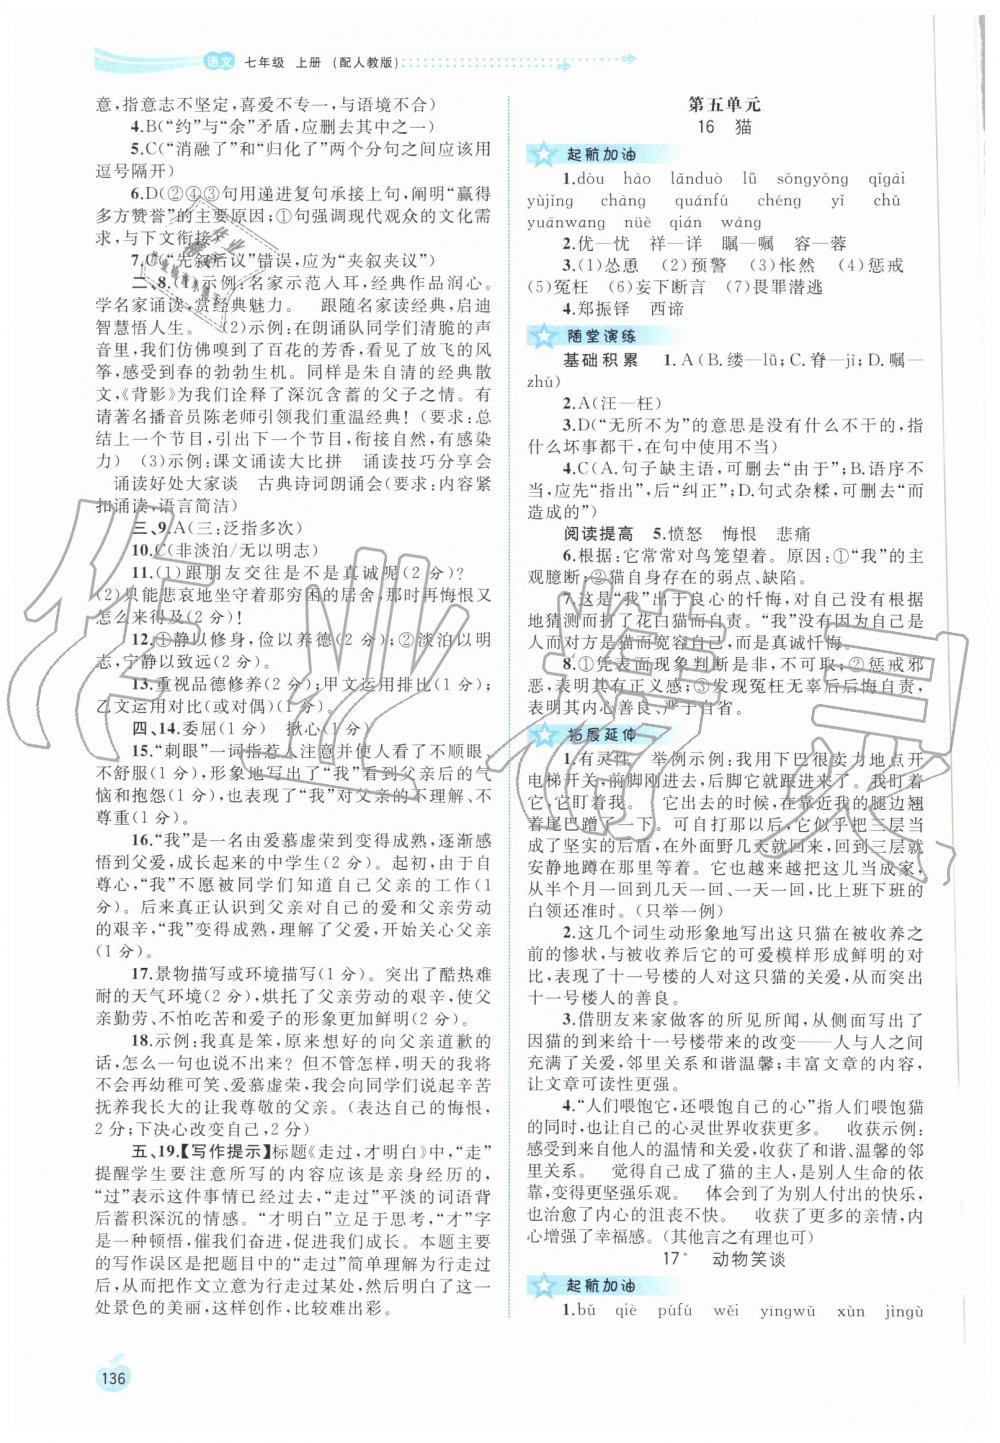 语文 七年级 上册 (配人教版)
意,指意志不坚定,喜爱不专一,与语境不符合)
4.B(“约”与“余”矛盾,应删去其中之一)
5.C(“消融了”和“归化了”两个分句之间应该用
逗号隔开)
6.D(②④③句用递进复句承接上句,阐明“赢得
多方赞誉”的主要原因;①句强调现代观众的文化需
求,与下文衔接)
7.C(“先叙后议”错误,应为“夹叙夹议”)
二、8.(1)示例:名家示范入耳,经典作品润心。
学名家诵读,赏经典魅力。 跟随名家读经典,启迪
智慧悟人生。 (2)示例:在朗诵队同学们清脆的声
音里,我们仿佛嗅到了百花的芳香,看见了放飞的风
筝,感受到春的勃勃生机。同样是朱自清的经典散
文,《背影》为我们诠释了深沉含蓄的父子之情。有
请著名播音员陈老师引领我们重温经典!(要求:总
结上一个节目,引出下一个节目,衔接自然,有感染
力) (3)示例:课文诵读大比拼 诵读技巧分享会
诵读好处大家谈 古典诗词朗诵会(要求:内容紧
扣诵读,语言简洁)
三、9.A(三:泛指多次)
10.C(非淡泊/无以明志)
11.(1)跟朋友交往是不是真诚呢(2 分)?
(2)只能悲哀地坐守着那穷困的居舍,那时再悔恨又
怎么来得及(2 分)!
12.①静以修身,俭以养德(2 分);②淡泊以明
志,宁静以致远(2 分)。
13.重视品德修养(2 分);甲文运用排比(1 分),
乙文运用对比(或对偶)(1 分)。
四、14.委屈(1 分) 揪心(1 分)
15.“刺眼”一词指惹人注意并使人看了不顺眼、
不舒服(1 分),形象地写出了“我”看到父亲后的气
恼和抱怨(1 分),表现了“我”对父亲的不理解、不
尊重(1 分)。
16.“我”是一名由爱慕虚荣到变得成熟,逐渐感
悟到父爱,成长起来的中学生(1 分)。起初,由于自
尊心,“我”不愿被同学们知道自己父亲的工作(1
分)。后来真正认识到父亲对自己的爱和父亲劳动
的艰辛,“我”变得成熟,理解了父爱,开始关心父亲
(1 分)。
17.景物描写或环境描写(1 分)。突出了酷热难
耐的天气环境(2 分),烘托了父亲劳动的艰辛,使父
亲勤劳、不怕吃苦和爱子的形象更加鲜明(2 分)。
18.示例:我真是笨,原来想好的向父亲道歉的
话,怎么一句也说不出来?但不管怎样,明天的我将
不会再幼稚可笑、爱慕虚荣,我会向同学们说起辛苦
抚养我长大的让我尊敬的父亲。(表达自己的悔恨,
2 分;下决心改变自己,2 分)
五、19.【写作提示】标题《走过,才明白》中,“走”
提醒学生要注意所写的内容应该是亲身经历的,
“过”表示这件事情已经结束,“走过”平淡的词语背
后蓄积深沉的情感。“才明白”立足于思考,“才”字
是一种顿悟,催我们奋进,促进我们成长。本题主要
的写作误区是把题目中的“走过”简单理解为行走过
后,并把作文立意为行走过某处,然后明白了这一处
景色的美丽,这样创作,比较难出彩。
136
第五单元
16 猫
起航加油
1.dòu hào lǎnduò lǚ sǒngyǒng qǐgài
yùjǐng chàng quánfú chéng yǐ chǔ
yuānwang nüè qián wàng
2.优—忧 祥—详 瞩—嘱 容—蓉
3.(1)怂恿 (2)预警 (3)怅然 (4)惩戒
(5)冤枉 (6)妄下断言 (7)畏罪潜逃
4.郑振铎 西谛
随堂演练
基础积累 1.A(B.缕—lǚ;C.脊—jǐ;D.嘱—
zhǔ)
2.A(汪—枉)
3.D(“无所不为”的意思是没有什么不干的,指
什么坏事都干,在句中使用不当)
4.C(A.句子缺主语,可删去“由于”;B.语序不
当,应先“指出”,后“纠正”;D.句式杂糅,可删去“而
造成的”)
阅读提高 5.愤怒 悔恨 悲痛
6.根据:它常常对鸟笼望着。原因:①“我”的主
观臆断;②猫自身存在的弱点、缺陷。
7.这是“我”出于良心的忏悔,对自己没有根据
地猜测而打了花白猫而自责。“我”没有因为自己是
人而对方是猫而宽容自己,而是真诚忏悔。
8.①凭表面现象判断是非,不可取;②惩戒邪
恶,表明其有正义感;③发现冤枉无辜后后悔自责,
表明其内心善良、严于自省。
拓展延伸
1.有灵性。 举例示例:我用下巴很尽力地点开
电梯开关,前脚刚进去,后脚它就跟进来了。我盯着
它,它盯着我。 它出去的时候,在靠近我的腿边翘
着尾巴蹭了一下。 可自打那以后,它似乎把三层当
成了坚实的后盾,在外面野几天就回来,回到三层就
安静地蹲在那里等着。 它也越来越把这儿当成家,
从半个月一回到几天一回、一天一回,比上班下班的
白领还准时。(只举一例)
2.这几个词生动形象地写出这只猫在被收养之
前的惨状,与被收养后它的可爱模样形成鲜明的对
比,表现了十一号楼的人对这只猫的关爱,从而突出
十一号楼人的善良。
3.借朋友来家做客的所见所闻,从侧面写出了
因猫的到来给十一号楼带来的改变——人与人之间
充满了关爱,邻里关系和谐温馨;丰富文章的内容,
让文章可读性更强。
4.“人们喂饱它,还喂饱自己的心”指人们收养猫
的过程,也让自己的心灵世界收获了更多。 收获示例:
感受到来自他人的温情和关爱,和谐、温馨、幸福的邻
里关系。 觉得自己成了猫的主人,是别人生命的依
靠,变得更坚强乐观。 体会到了为别人付出的快乐,
也治愈了内心的沮丧不快。 收获了更多的亲情,内
心更增强了幸福感。(其他言之有理也可)
17* 动物笑谈
起航加油
1.bǔ qiè púfú wěi yīngwǔ xùn jìngù